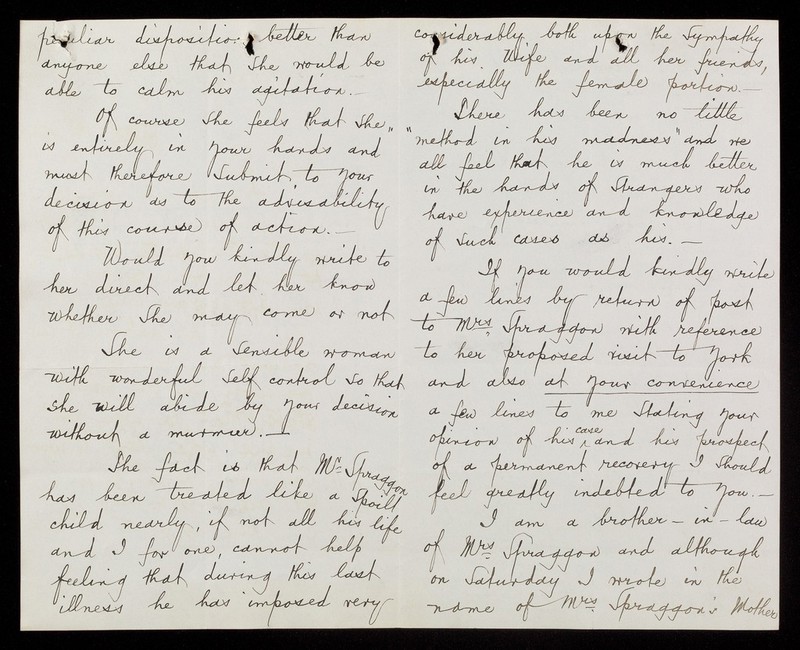 peculiar disposition better than
anyone else that she would be
able to calm his agitation. —
Of course she feels that she
is entirely in your hands and
must therefore submit to your
decision as to the advisability
of this course of action. —
Would you kindly write to
her direct and let her know
whether she may come or not
She is a sensible woman
with wonderful self control so that
she will abide by your decision
without a murmur. —
The fact is that Mr. Spraggon
has been treated like a spoilt
child nearly, if not all his life
and I for one, cannot help
feeling that during this last
illness he has imposed very
considerably both upon the sympathy
of his Wife and all her friends,
especially the female portion. —
There has been no little
"method in his madness" and we
all feel that he is much better
in the hands of Strangers who
have experience and knowledge
of such cases as his. —
If you would kindly write
a few lines by return of post
to Mrs. Spraggon with reference
to her proposed visit to York
and also at your convenience
a few lines to me stating your
opinion of his case and his prospect
of a permanent recovery I should
feel greatly indebted to you. —
I am a brother-in-law
of Mrs. Spraggon and although
on Saturday I wrote in the
name of Mrs. Spraggon's Mother